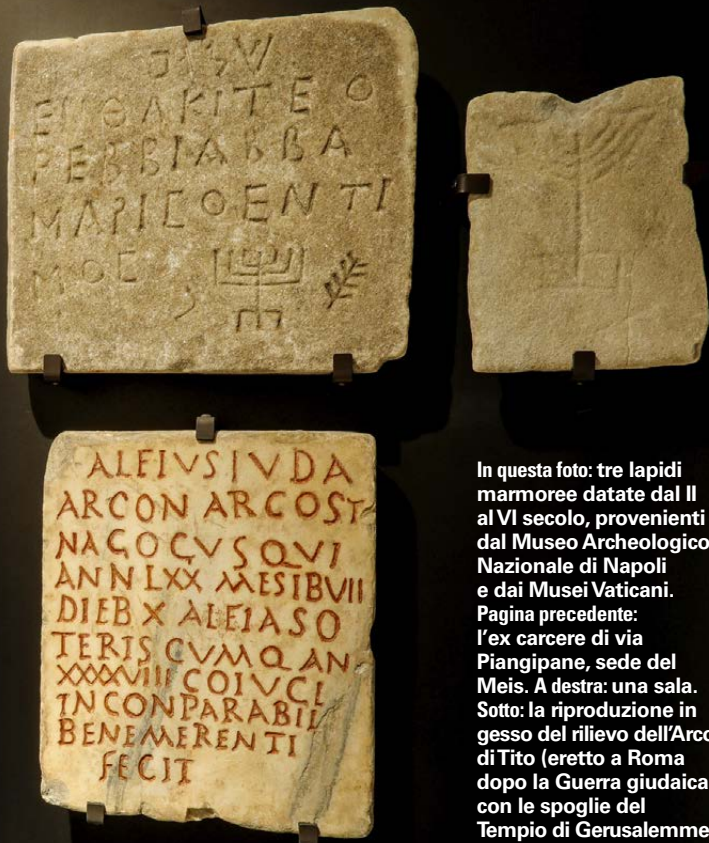 ΕΝΘΑΚΙΤΕ Ο
ΡΕΒΒΙΑΒΒΑ
ΜΑΡΙC Ο ΕΝΤΙ
ΜΟC
ALFIVS IVDA
ARCON ARCOSY
NAGOGVS QVI
ANN LXX MESIB VII
DIEB X ALFIA SO
TERIS CVM Q AN
XXXXVIII COIVGI
INCONPARABILI
BENEMERENTI
FECIT
In questa foto: tre lapidi
marmoree datate dal II
al VI secolo, provenienti
dal Museo Archeologico
Nazionale di Napoli
e dai Musei Vaticani.
Pagina precedente:
l'ex carcere di via
Piangipane, sede del
Meis. A destra: una sala.
Sotto: la riproduzione in
gesso del rilievo dell'Arco
di Tito (eretto a Roma
dopo la Guerra giudaica)
con le spoglie del
Tempio di Gerusalemme